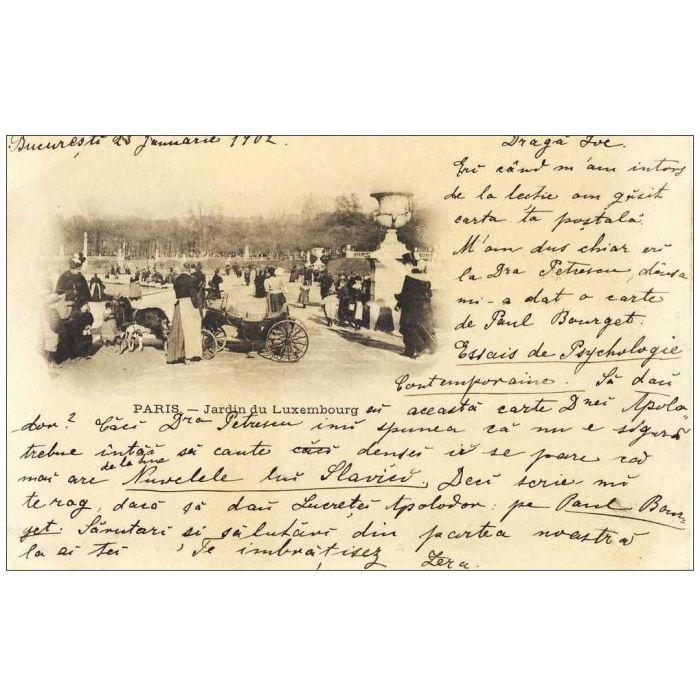 București 23 Ianuarie 1902.
Dragă Joe.
Eri când m'am intors
de la lecție am găsit
carta ta poștală.
M'am dus chiar eri
la Dra Petrescu, dânsa
mi-a dat o carte
de Paul Bourget:
Essais de Psychologie
Contemporaine. Să dau
PARIS. — Jardin du Luxembourg
eu această carte Dnei Apolo
dor? Căci Dra Petrescu imi spunea că nu e sigură
trebue întâi să caute căci densei ii se pare că
mai are de la tine Nuvelele lui Slavici. Deci scrie-mi
te rog, dacă să dau Lucreției Apolodor pe Paul Bour-
get. Sărutări si salutări din partea noastră
la ai tei Te imbrățisez